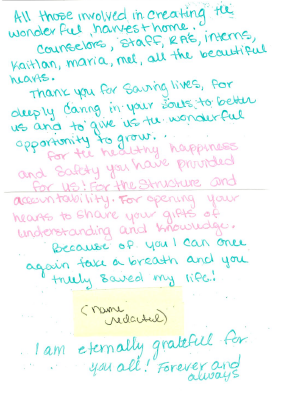 All those involved in creating the
wonderful, harvest home.
Counselors, Staff, RA's, interns,
Kaitlan, maria, mel, all the beautiful
hearts.
Thank you for saving lives, for
deeply caring in your souls, to better
us and to give us the wonderful
opportunity to grow...
For the healthy happiness
and safety you have provided
for us! For the structure and
accountability. For opening your
hearts to share your gifts of
understanding and knowledge.
Because of you I can once
again take a breath and you
truely saved my life!
(name
redacted)
I am eternally grateful for
you all! Forever and
always